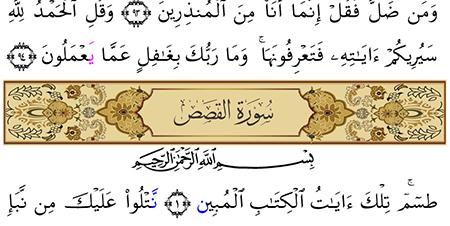 وَمَن ضَلَّ فَقُلْ إِنَّمَا أَنَا۠ مِنَ ٱلْمُنذِرِينَ ٩٣ وَقُلِ ٱلْحَمْدُ لِلَّهِ
سَيُرِيكُمْ ءَايَٰتِهِۦ فَتَعْرِفُونَهَا ۚ وَمَا رَبُّكَ بِغَٰفِلٍ عَمَّا يَعْمَلُونَ ٩٤
سُورَةُ القَصَصِ
بِسْمِ ٱللَّهِ ٱلرَّحْمَٰنِ ٱلرَّحِيمِ
طسٓمٓ ۚ تِلْكَ ءَايَٰتُ ٱلْكِتَٰبِ ٱلْمُبِينِ ١ نَّتْلُوا۟ عَلَيْكَ مِن نَّبَإِ